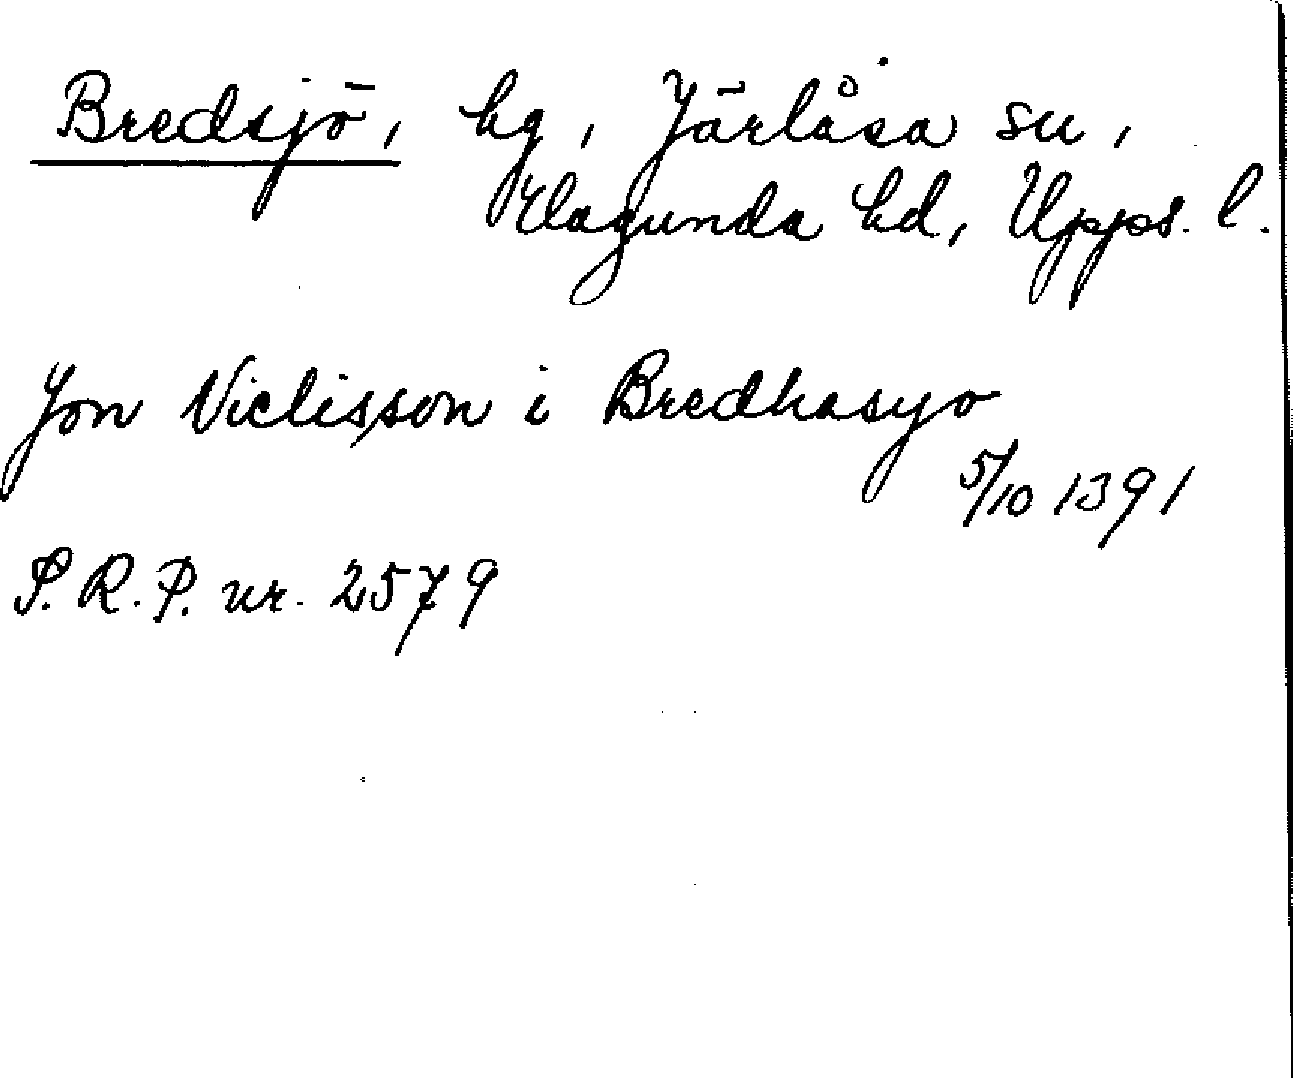 Bredsjö, hg, Järlåsa sn,
Hagunda hd, Upps. l.
Jon Niclisson i Bredhasyo
5/10 1391
S.R.P. nr. 2579